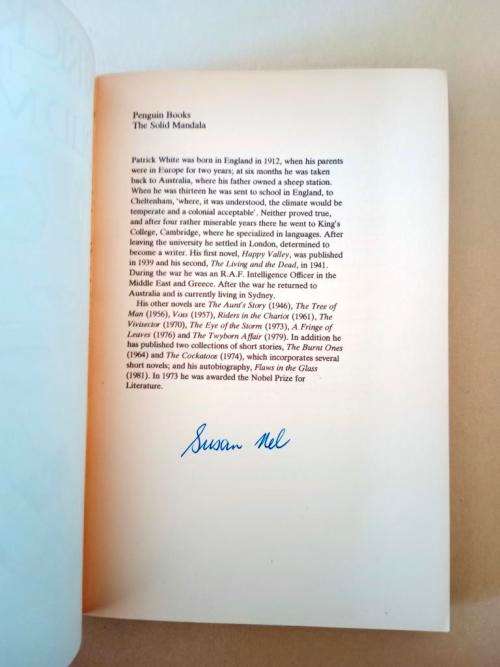 Penguin Books
The Solid Mandala
Patrick White was born in England in 1912, when his parents
were in Europe for two years; at six months he was taken
back to Australia, where his father owned a sheep station.
When he was thirteen he was sent to school in England, to
Cheltenham, 'where, it was understood, the climate would be
temperate and a colonial acceptable'. Neither proved true,
and after four rather miserable years there he went to King's
College, Cambridge, where he specialized in languages. After
leaving the university he settled in London, determined to
become a writer. His first novel, Happy Valley, was published
in 1939 and his second, The Living and the Dead, in 1941.
During the war he was an R.A.F. Intelligence Officer in the
Middle East and Greece. After the war he returned to
Australia and is currently living in Sydney.
His other novels are The Aunt's Story (1946), The Tree of
Man (1956), Voss (1957), Riders in the Chariot (1961), The
Vivisector (1970), The Eye of the Storm (1973), A Fringe of
Leaves (1976) and The Twyborn Affair (1979). In addition he
has published two collections of short stories, The Burnt Ones
(1964) and The Cockatoos (1974), which incorporates several
short novels; and his autobiography, Flaws in the Glass
(1981). In 1973 he was awarded the Nobel Prize for
Literature.
Susan Nel